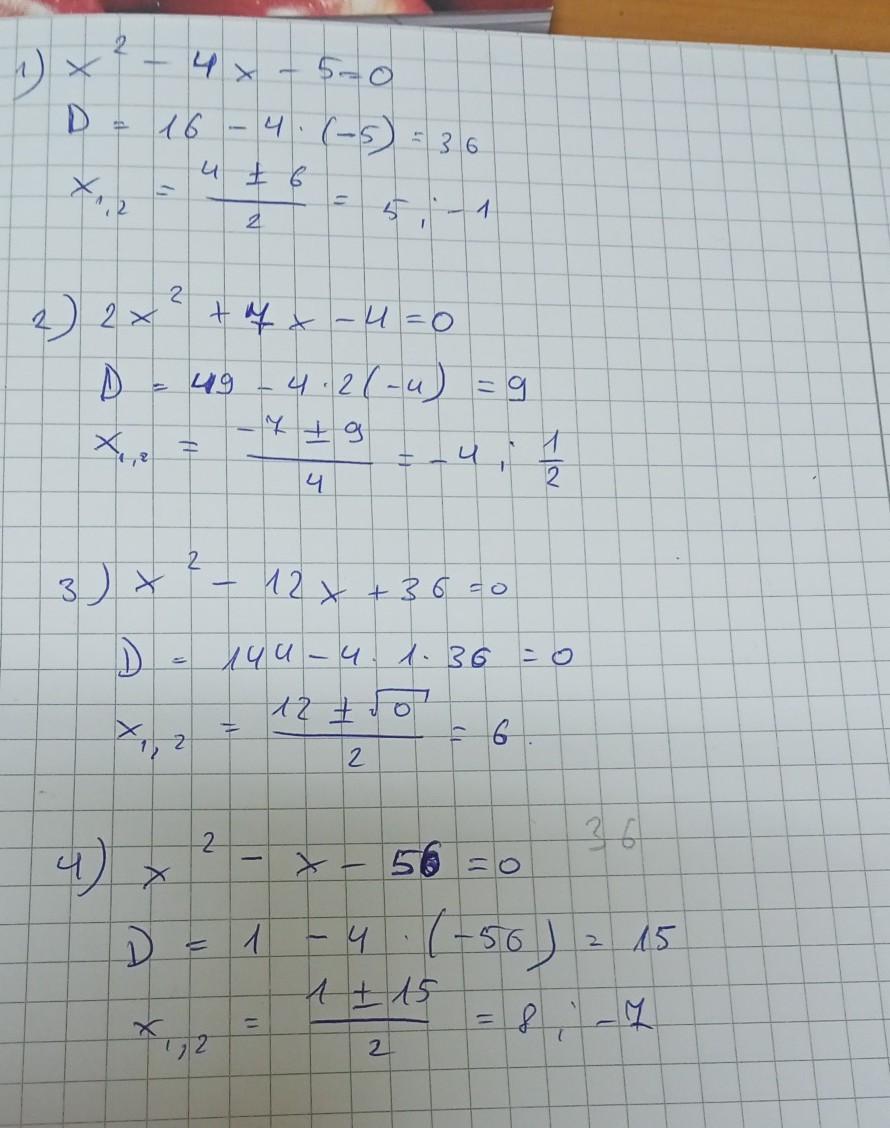 1) x² - 4x - 5=0
D = 16 - 4·(-5) = 36
x₁,₂ = (4 ± 6)/2 = 5 ; -1
2) 2x² + 7x - 4 = 0
D = 49 - 4·2(-4) = 9
x₁,₂ = (-7 ± 9)/4 = -4 ; 1/2
3) x² - 12x + 36 = 0
D = 144 - 4·1·36 = 0
x₁,₂ = (12 ± √0)/2 = 6.
36
4) x² - x - 56 = 0
D = 1 - 4·(-56) = 15
x₁,₂ = (1 ± 15)/2 = 8 ; -7